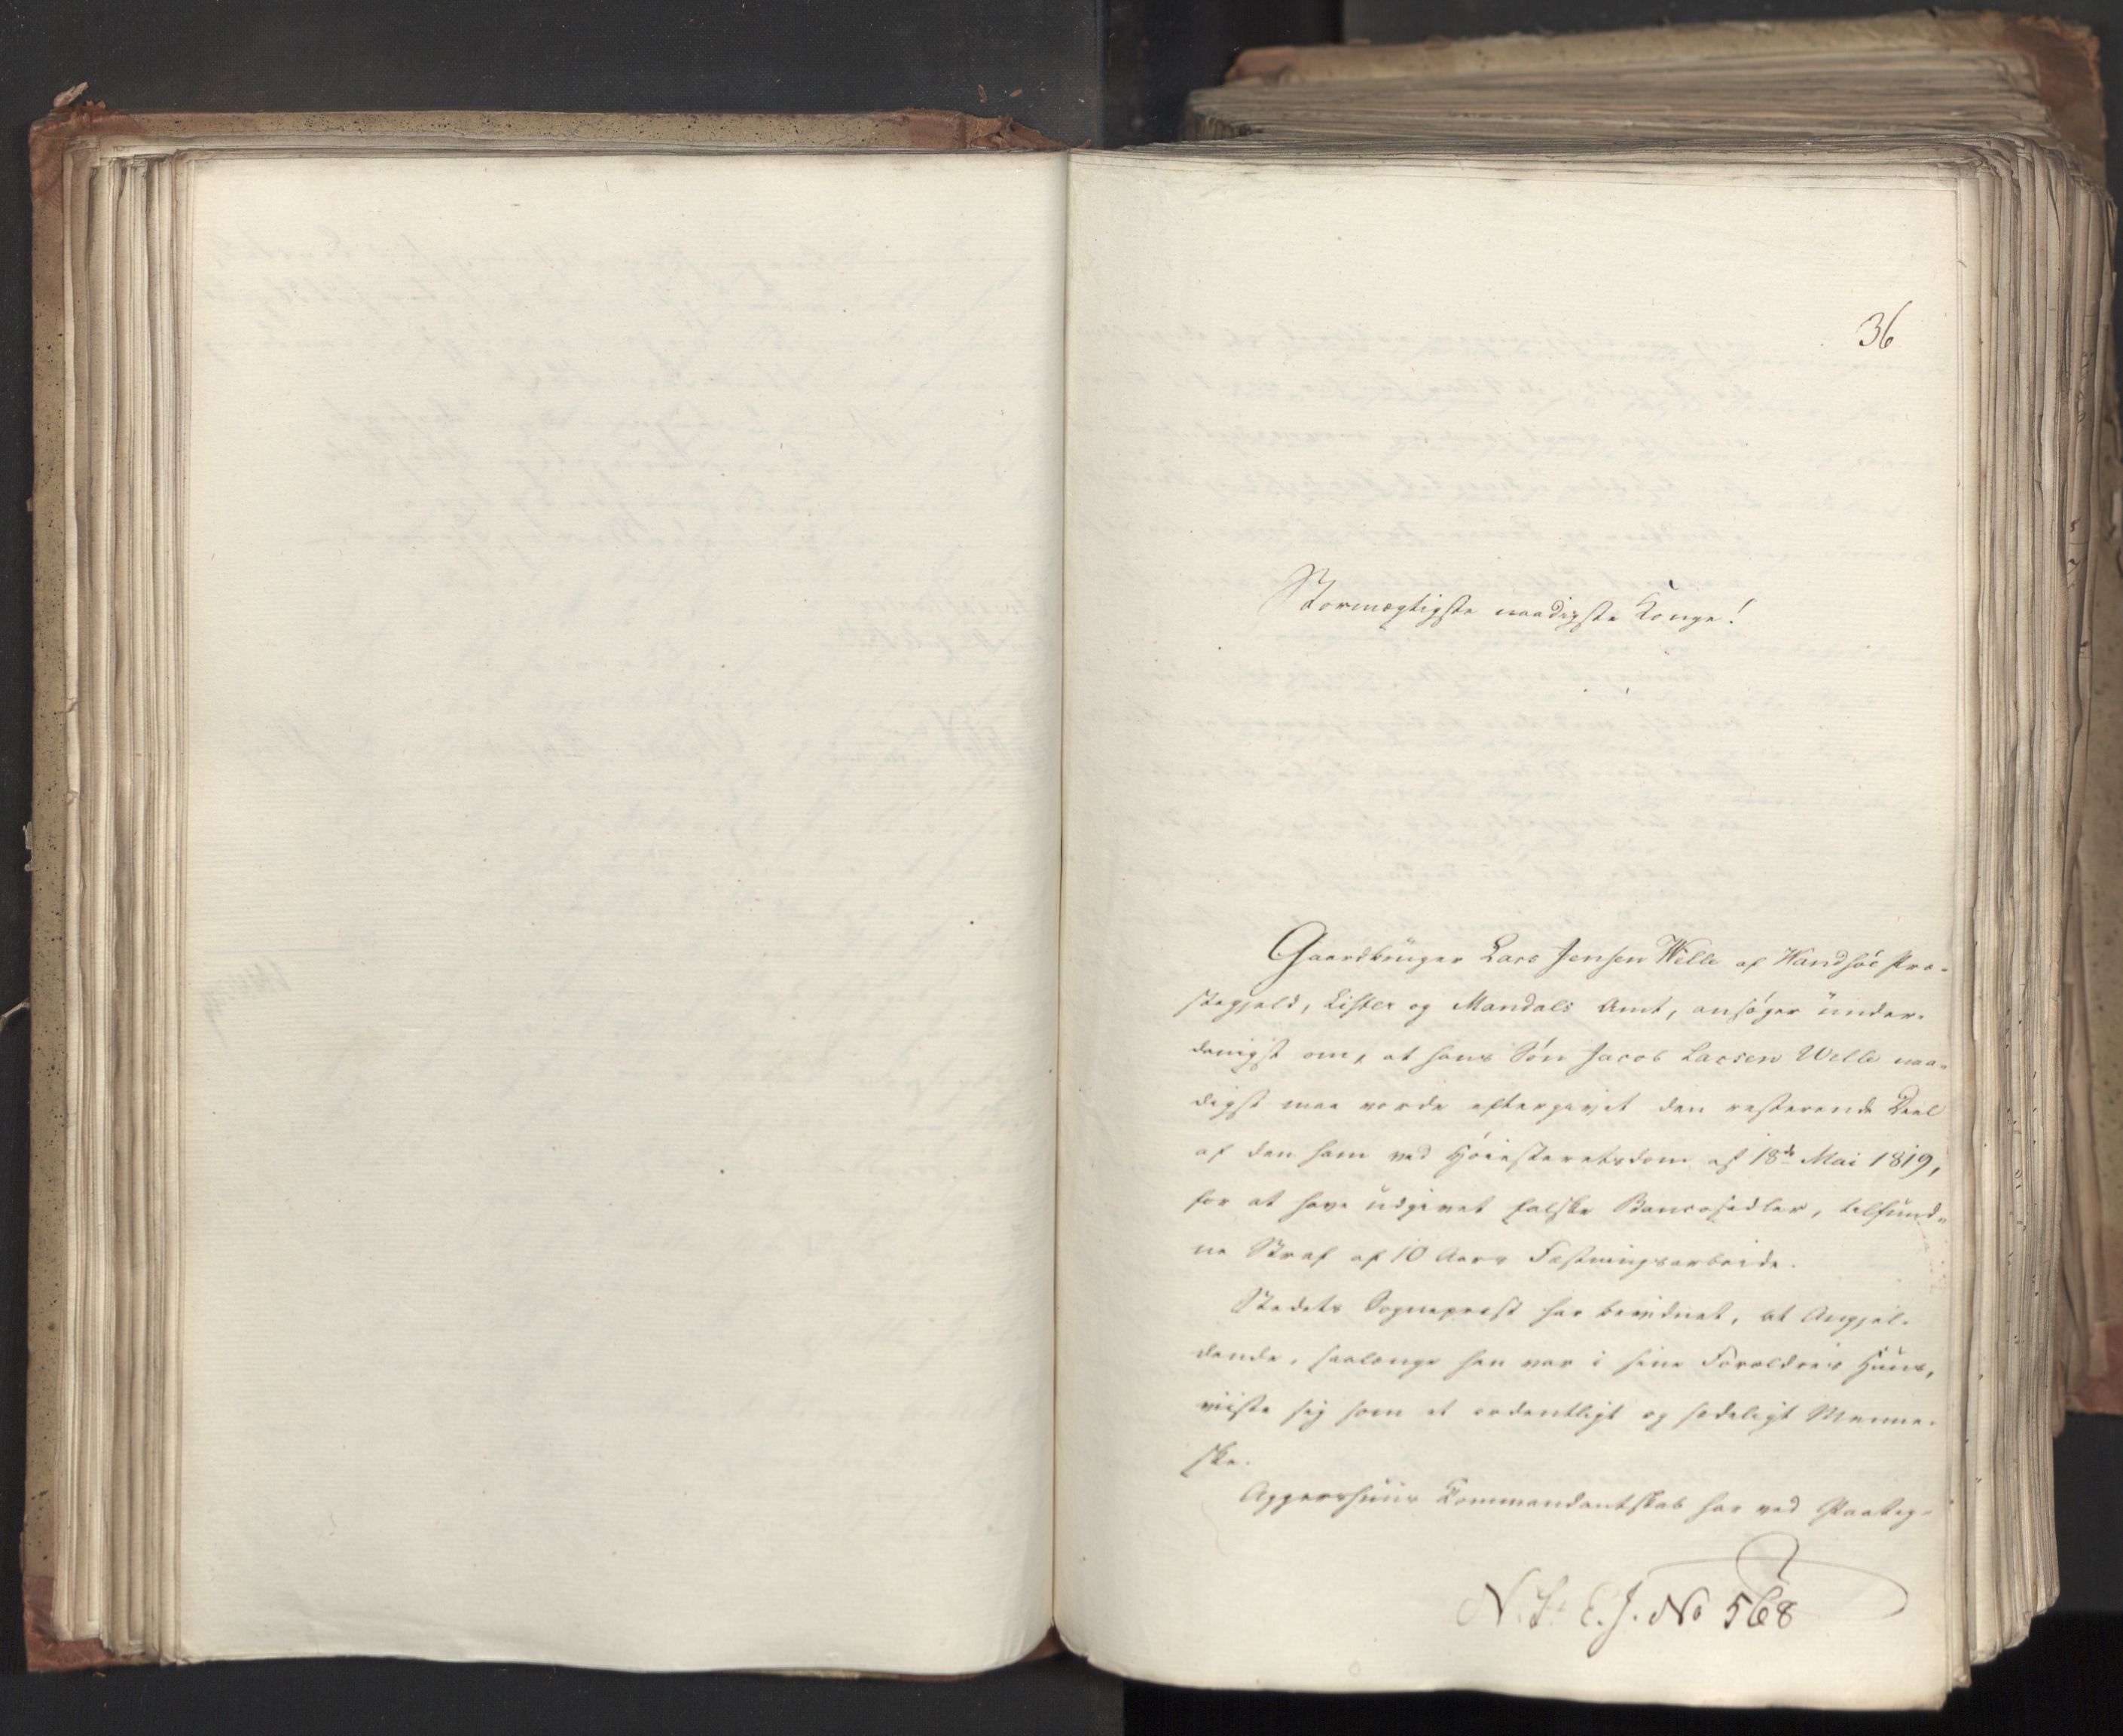 36
Stormægtigste naadigste Konge!
Gaardbruger Lars Jensen Welle af Wandsøe Præ-
stegjeld, Lister og Mandals Amt, ansøger under-
danigst om, at hans Søn Jacob Larsen Welle naa-
digst maa vorde eftergivet den resterende Deel
af den ham ved Høiesteretsdom af 18de Mai 1819,
for at have udgivet falske Bancosedler, tilfund-
ne Straf af 10 Aars Fæstningsarbeide.
Stedets Sognepræst har bevidnet, at Angjel-
dende, saalænge han var i sine Forældres Huus,
viiste sig som et ordentligt og sædeligt Menne-
ske.
Aggershuus Kommandantskab har ved Paateg-
N. St. E. J. No 568